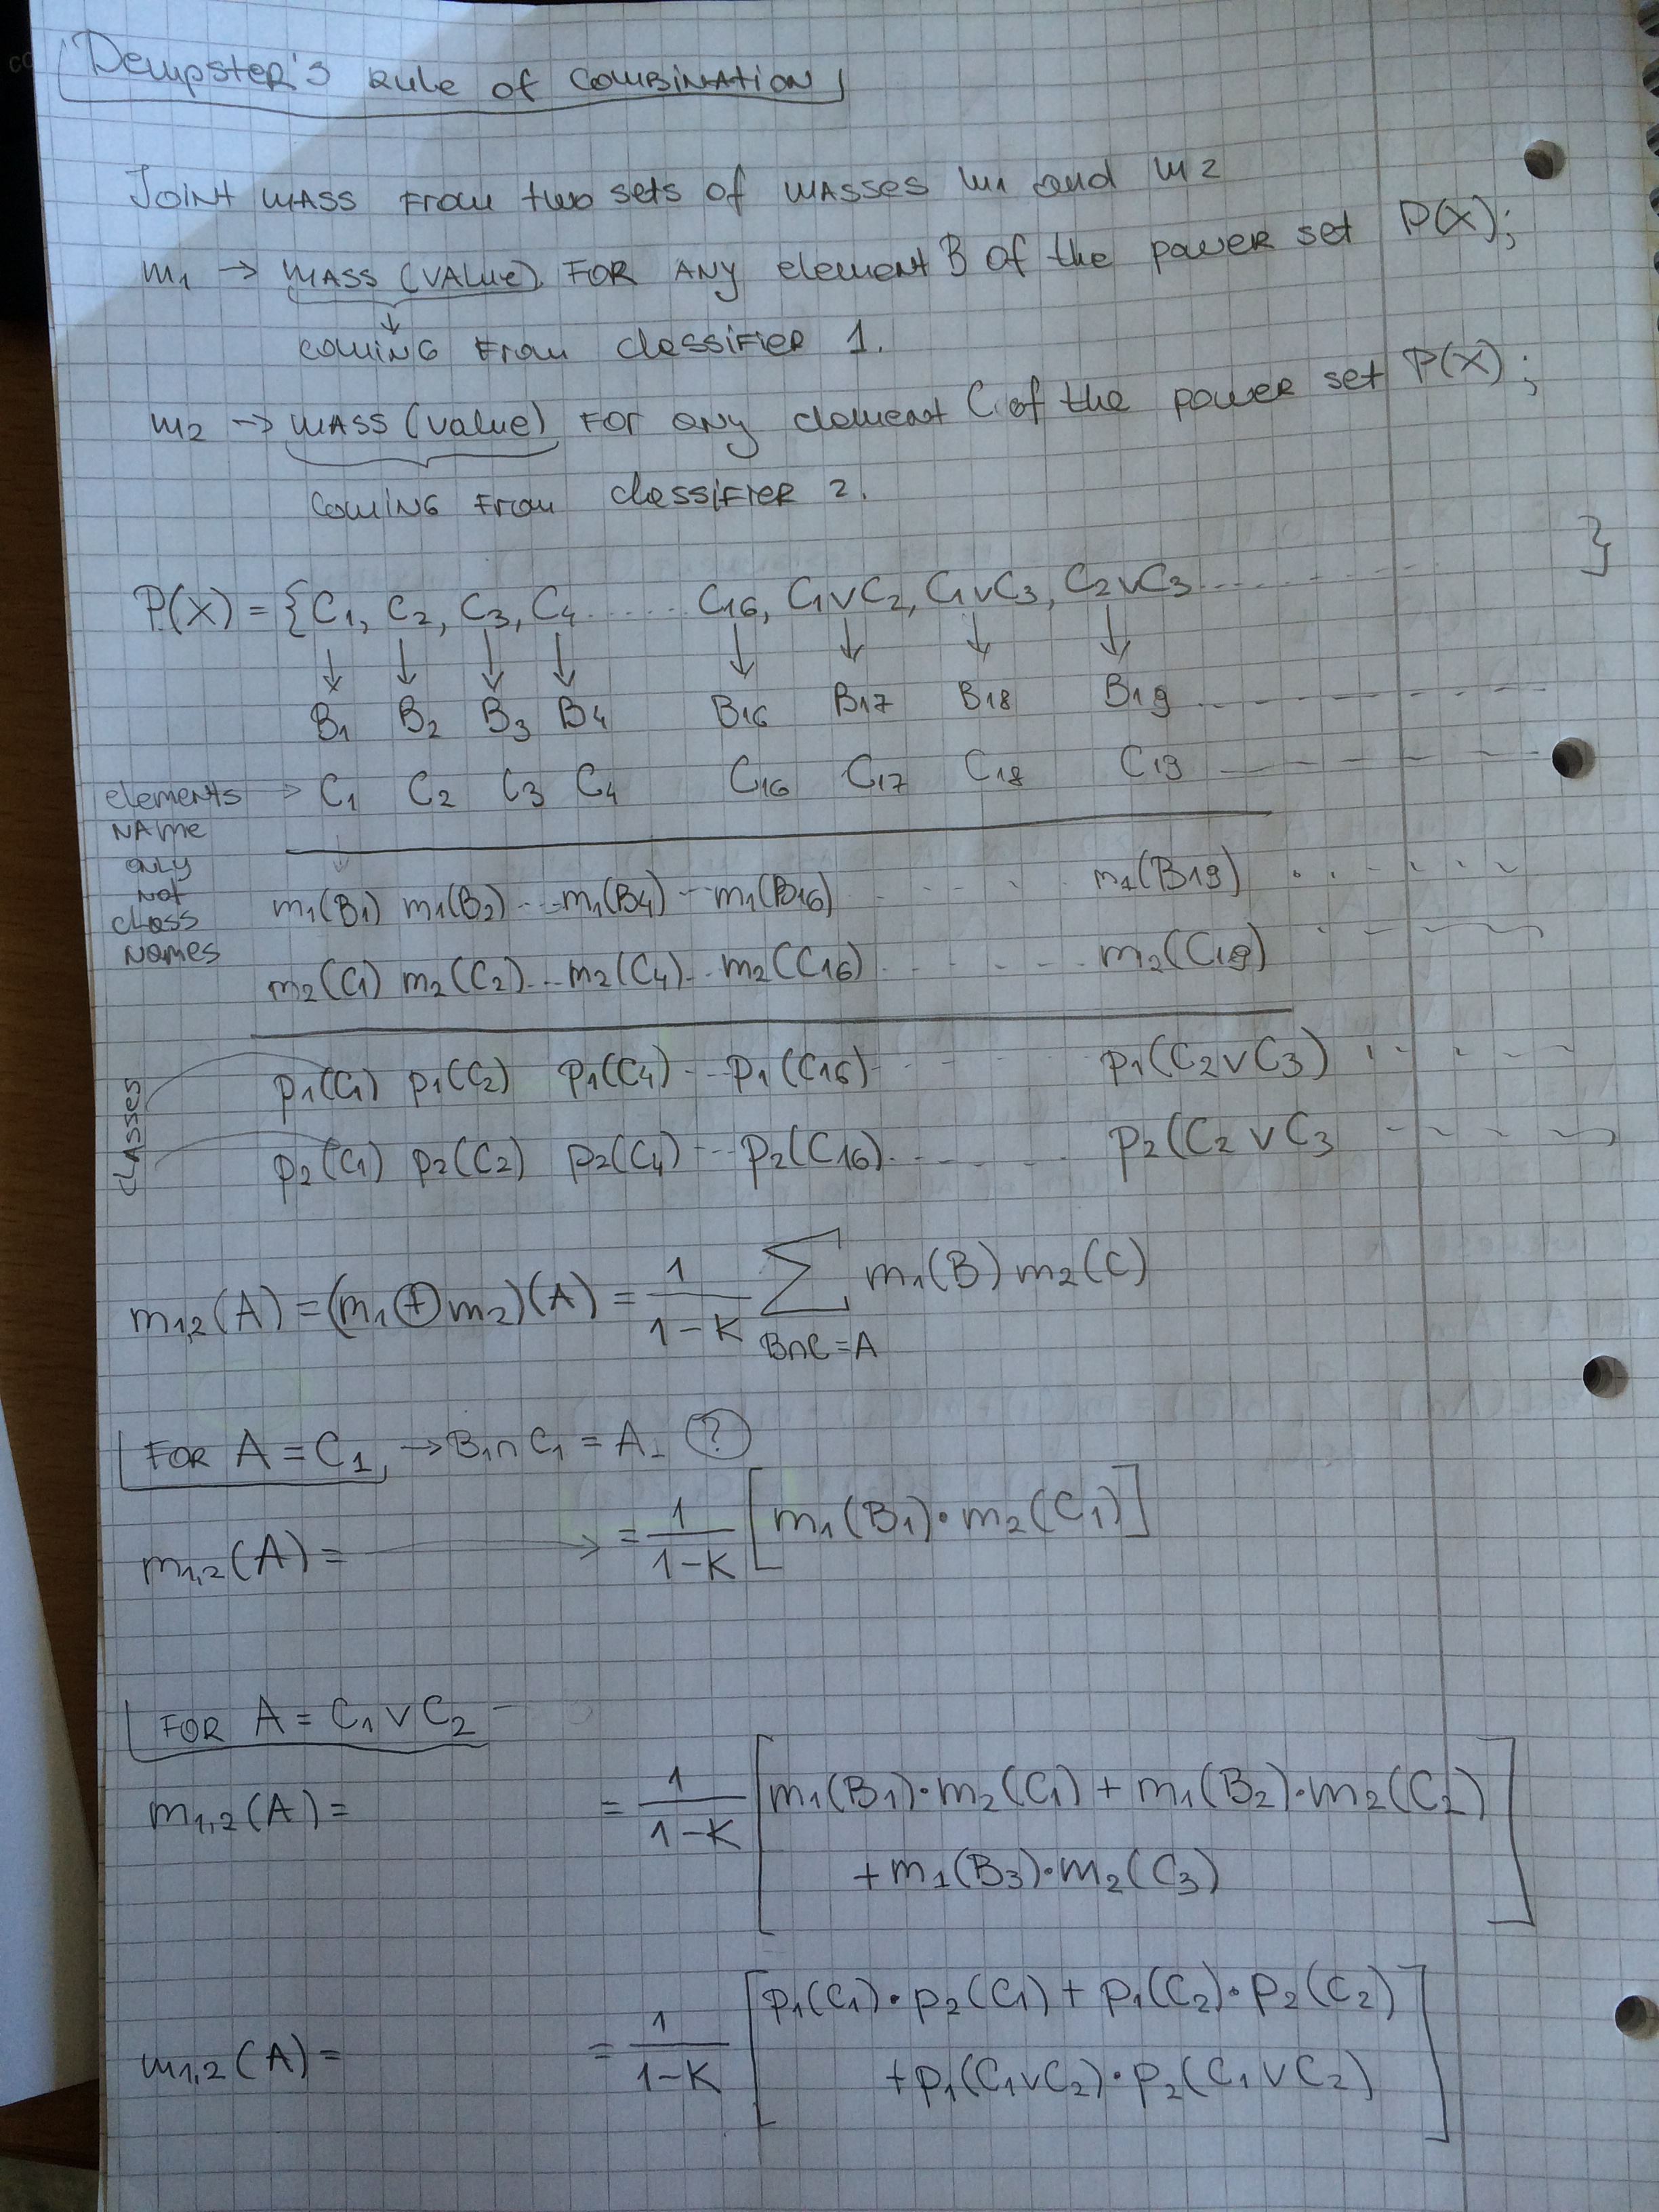 Dempster's Rule of Combination
Joint mass from two sets of masses m1 and m2
m1 → mass (value) for any element B of the power set P(X);
↓
coming from classifier 1.
m2 → mass (value) for any element C of the power set P(X);
coming from classifier 2.
P(X) = {C1, C2, C3, C4 ..... C16, C1∨C2, C1∨C3, C2∨C3 .......... }
↓ ↓ ↓ ↓ ↓ ↓ ↓ ↓
B1 B2 B3 B4 B16 B17 B18 B19 - - - - -
elements → C1 C2 C3 C4 C16 C17 C18 C19 - - - - -
name
only
not
class
names
m1(B1) m1(B2) ... m1(B4) ... m1(B16) . . . m1(B19) . . . . .
m2(C1) m2(C2) ... m2(C4) .. m2(C16) . . . . . m2(C19) . - - - -
classes
p1(C1) p1(C2) p1(C4) ... p1(C16) . . . p1(C2∨C3) . - - - -
p2(C1) p2(C2) p2(C4) ... p2(C16) . . . . . p2(C2∨C3 - - - - -
m1,2(A) = (m1⊕m2)(A) = 1/(1-K) ∑ m1(B) m2(C)
B∩C=A
For A = C1, → B1∩C1 = A. (?)
m1,2(A) = → = 1/(1-K) [m1(B1)·m2(C1)]
For A = C1∨C2 -
m1,2(A) = = 1/(1-K) [m1(B1)·m2(C1) + m1(B2)·m2(C2)
+ m1(B3)·m2(C3)]
m1,2(A) = = 1/(1-K) [p1(C1)·p2(C1) + p1(C2)·p2(C2)
+ p1(C1∨C2)·p2(C1∨C2)]